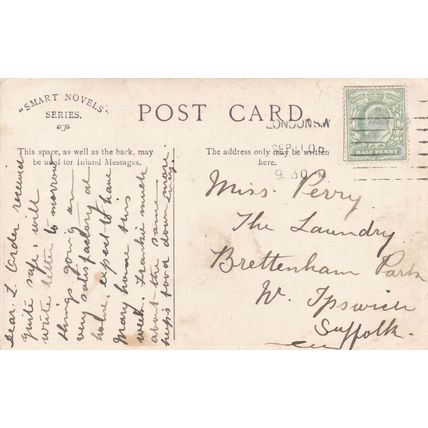 "SMART NOVELS"
SERIES.
POST CARD.
This space, as well as the back, may
be used for Inland Messages.
The address only may be written
here.
LONDON S.W
SEP 11 06
9.30
HALF PENNY
Dear L. Order received
quite safe; will
write letter to morrow
things going on
very satisfactory at
home, expect to have
Mary home this
week. Frankie much
about the same
hopes for a down
Miss. Perry
The Laundry
Brettenham Park
Nr. Ipswich
Suffolk.